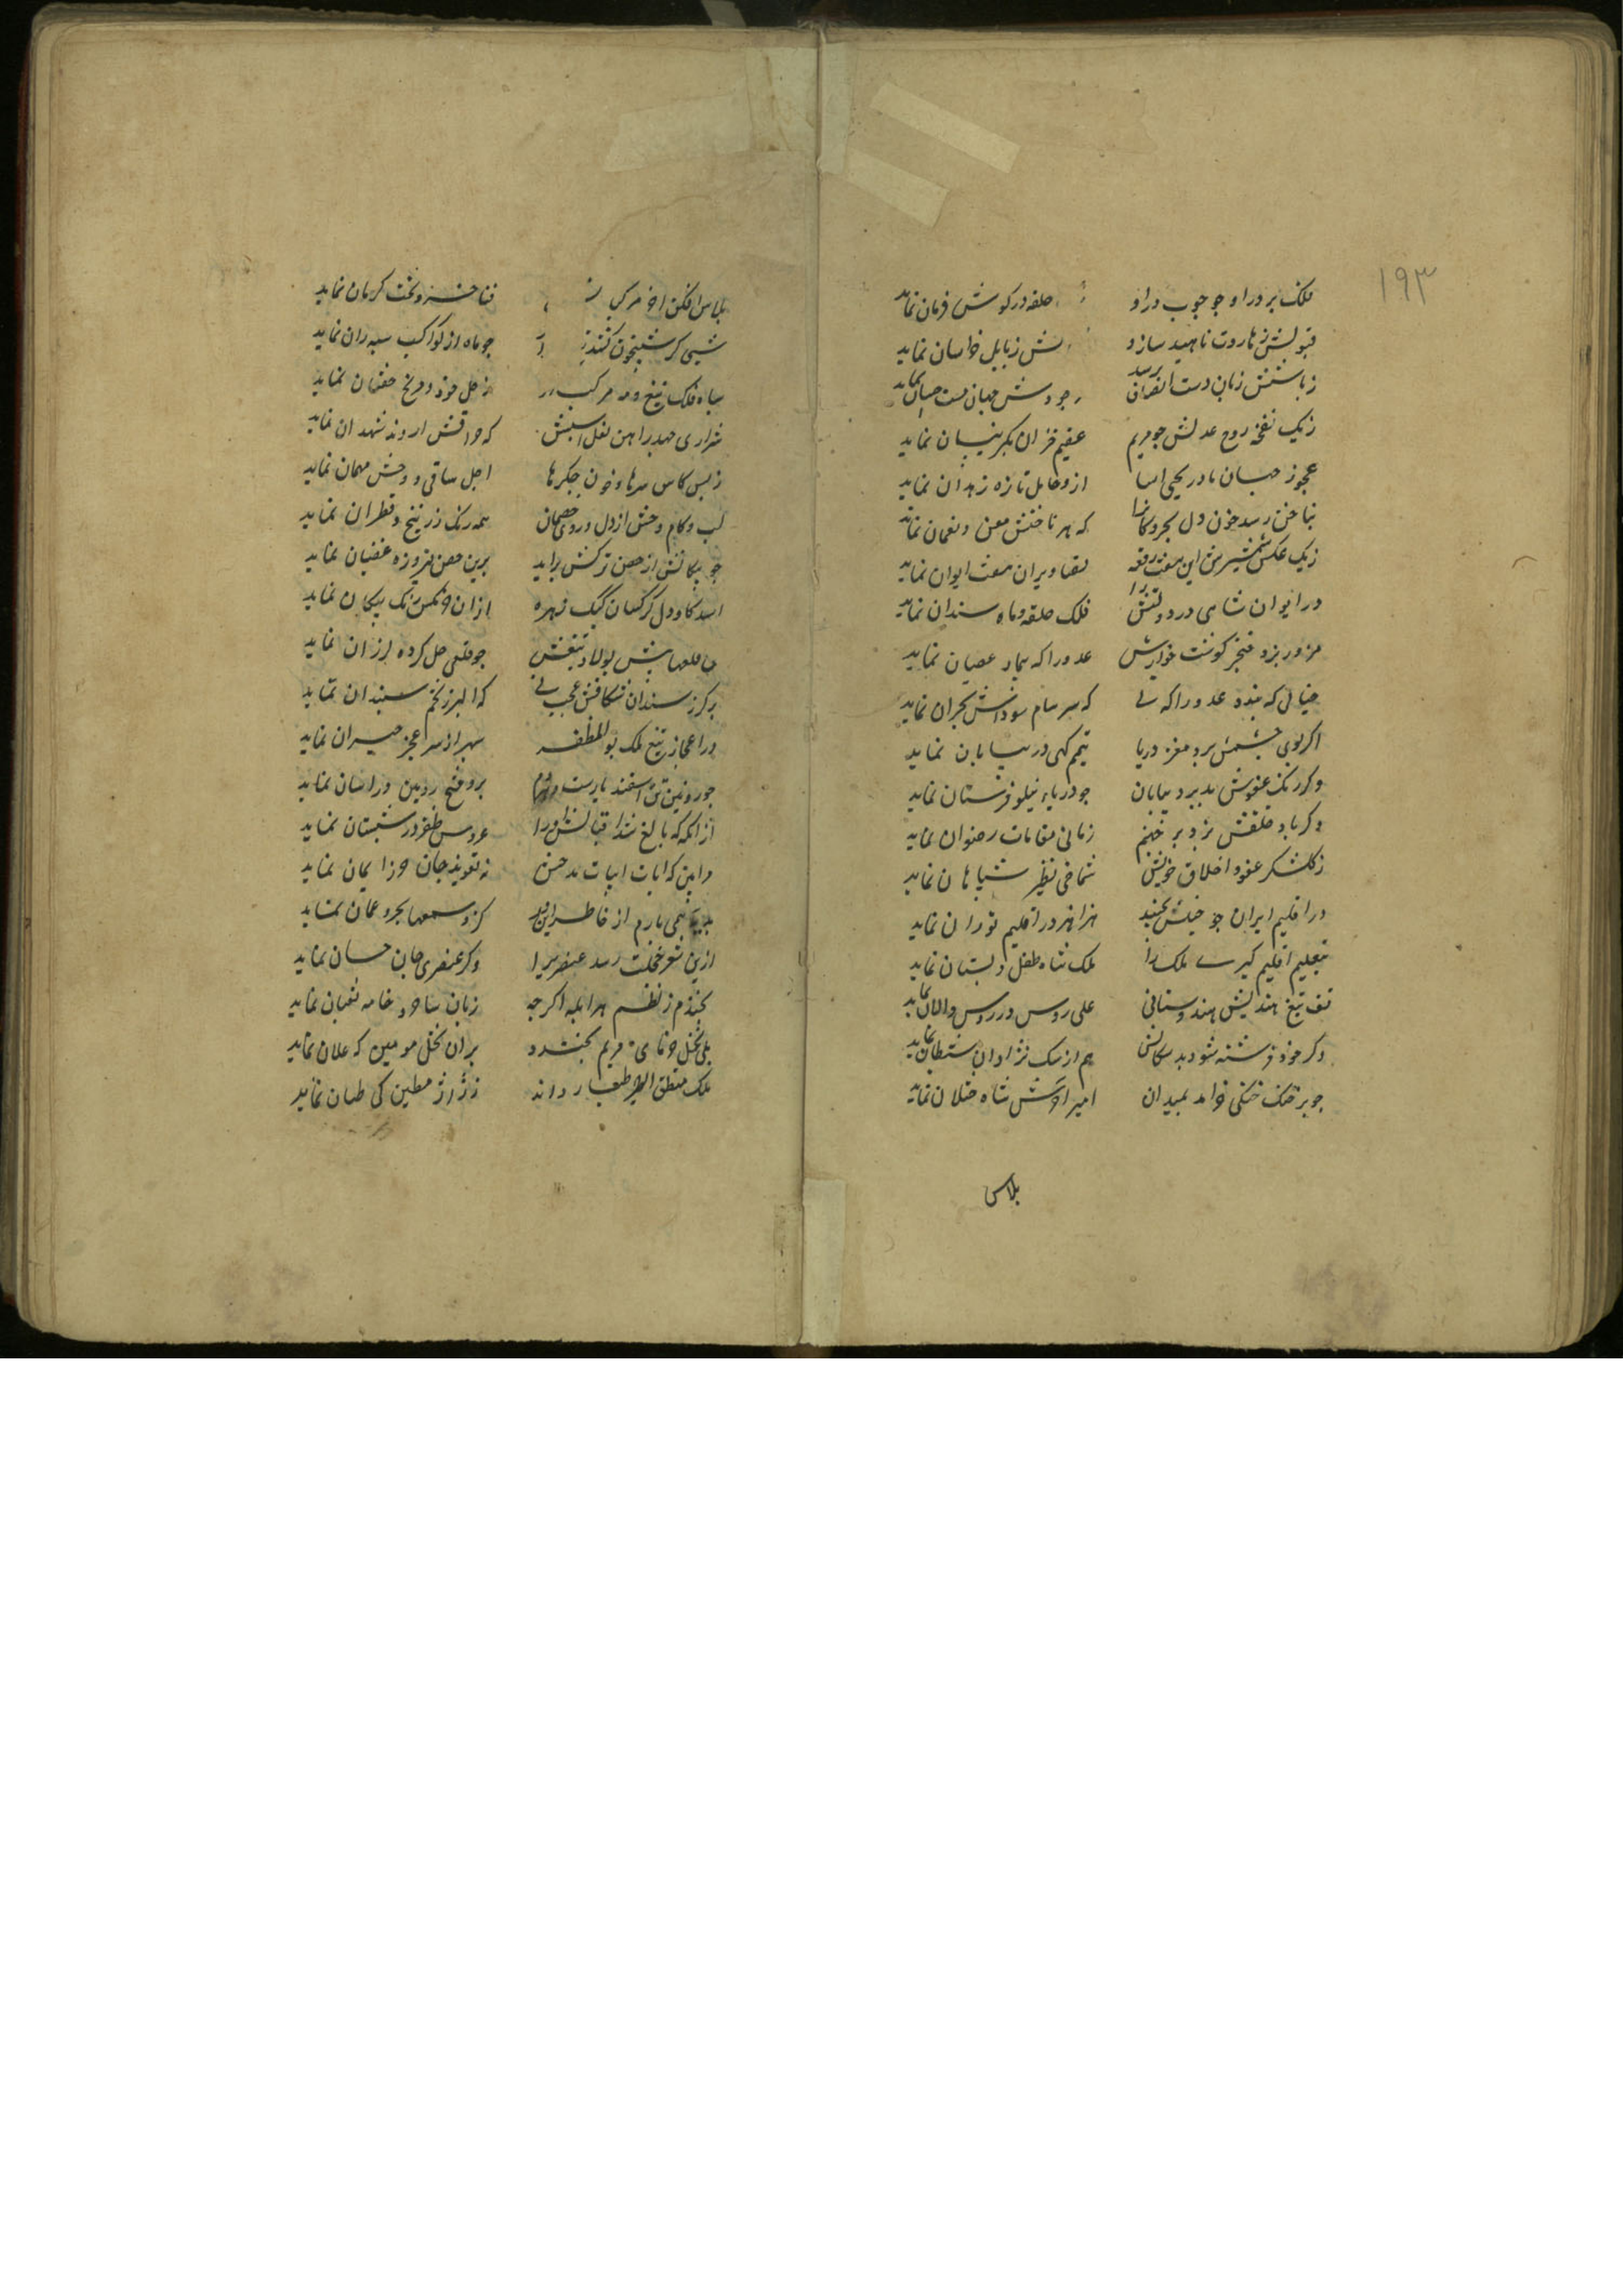 ۱۹۳
فلک بر در او چو چوب در او حلقه در کوش فرمان نماید
قبولش ز هاروت ناهید سازد ز بابل خراسان نماید
جهان
زیک نفخهٔ روح عدلش جو مریم عقیم خزان بکر نیسان نماید
عجوز جهان مادر یحیی اسا ازو حامل تازه زهدان نماید
بناخن رسد خون دل بحر و کانرا که هر ناخنش معن و نعمان نماید
زیک عکس شمشیرش این هفت رقعه تصاویر ان هفت ایوان نماید
در ایوان شاهی در دولتش را فلک حلقه و ماه سندان نماید
عدو را که بیمار عصیان نماید
خیالی که بندد عدو را که سرسام سوداش بحران نماید
اکر بوی خشمش برد مغز دریا تیمم کهی در بیابان نماید
وکر رنک عفوش پذیرد بیابان جو دریاء نیلوفرستان نماید
وکر باد خلقش وزد بر جهنم زمانی مقامات رضوان نماید
زکلشکر عفو و اخلاق خویش شماخی نظیر سپاهان نماید
در اقلیم ایران جو خیلش بجنبد هزاهز در اقلیم توران نماید
بتعلیم اقلیم کیری ملک را ملک شاه طفل دبستان نماید
تف تیغ هندیش هندوستانی علی روس در روس و الان نماید
وکر خود فرشته شود بد سکالش هم از سک نژادان شیطان نماید
جو بر خنک ختلی خرامد بمیدان امیر اخرش شاه ختلان نماید
پلاس
پلاس افکن اخر قنا خسرو و تخت کرمان نماید
شبی کر شبیخون کند جو ماه از کواکب سپه ران نماید
سپاه فلک تیغ و مه مرکب زحل خود و مریخ خفتان نماید
شراری جهد ز اهن نعل اسبش که حراقش اروند و شهدان نماید
زبس کاس سرها و خون جکرها اجل ساقی و وحش مهمان نماید
لب و کام وحش از دل و روی خصمان همه رنک زرنیخ و قطران نماید
جو پیکانش از حصن ترکش براید برین حصن فیروزه غضبان نماید
اسد کاو دل کرکسان کبک زهره از ان خرمکس رنک پیکان نماید
جو قلعی حل کرده لرزان نماید
بر کرز سندان شکافش عجب نی که البرز تخم سپندان نماید
در اعجاز تیغ ملک بوالمظفر سپهر از سر عجز حیران نماید
جو رویین تن اسفندیارست هر دم برو فتح رویین دز اسان نماید
عروس ظفر در شبستان نماید
نه تعویذ جان حرز ایمان نماید
بدیها همی بارم از خاطر این در کزو سمعها بحر عمان نماید
ازین شعر خجلت رسد عنصری را وکر عنصری جان حسان نماید
بخندم ز نظم هر ابله اکر جه زبان ساحر و خامه ثعبان نماید
بلی نخل خرمای مریم بخندد بر ان نخل مومین که علان نماید
ملک منطق الطیر طیار داند ز ژاژ مطین کی طیان نماید